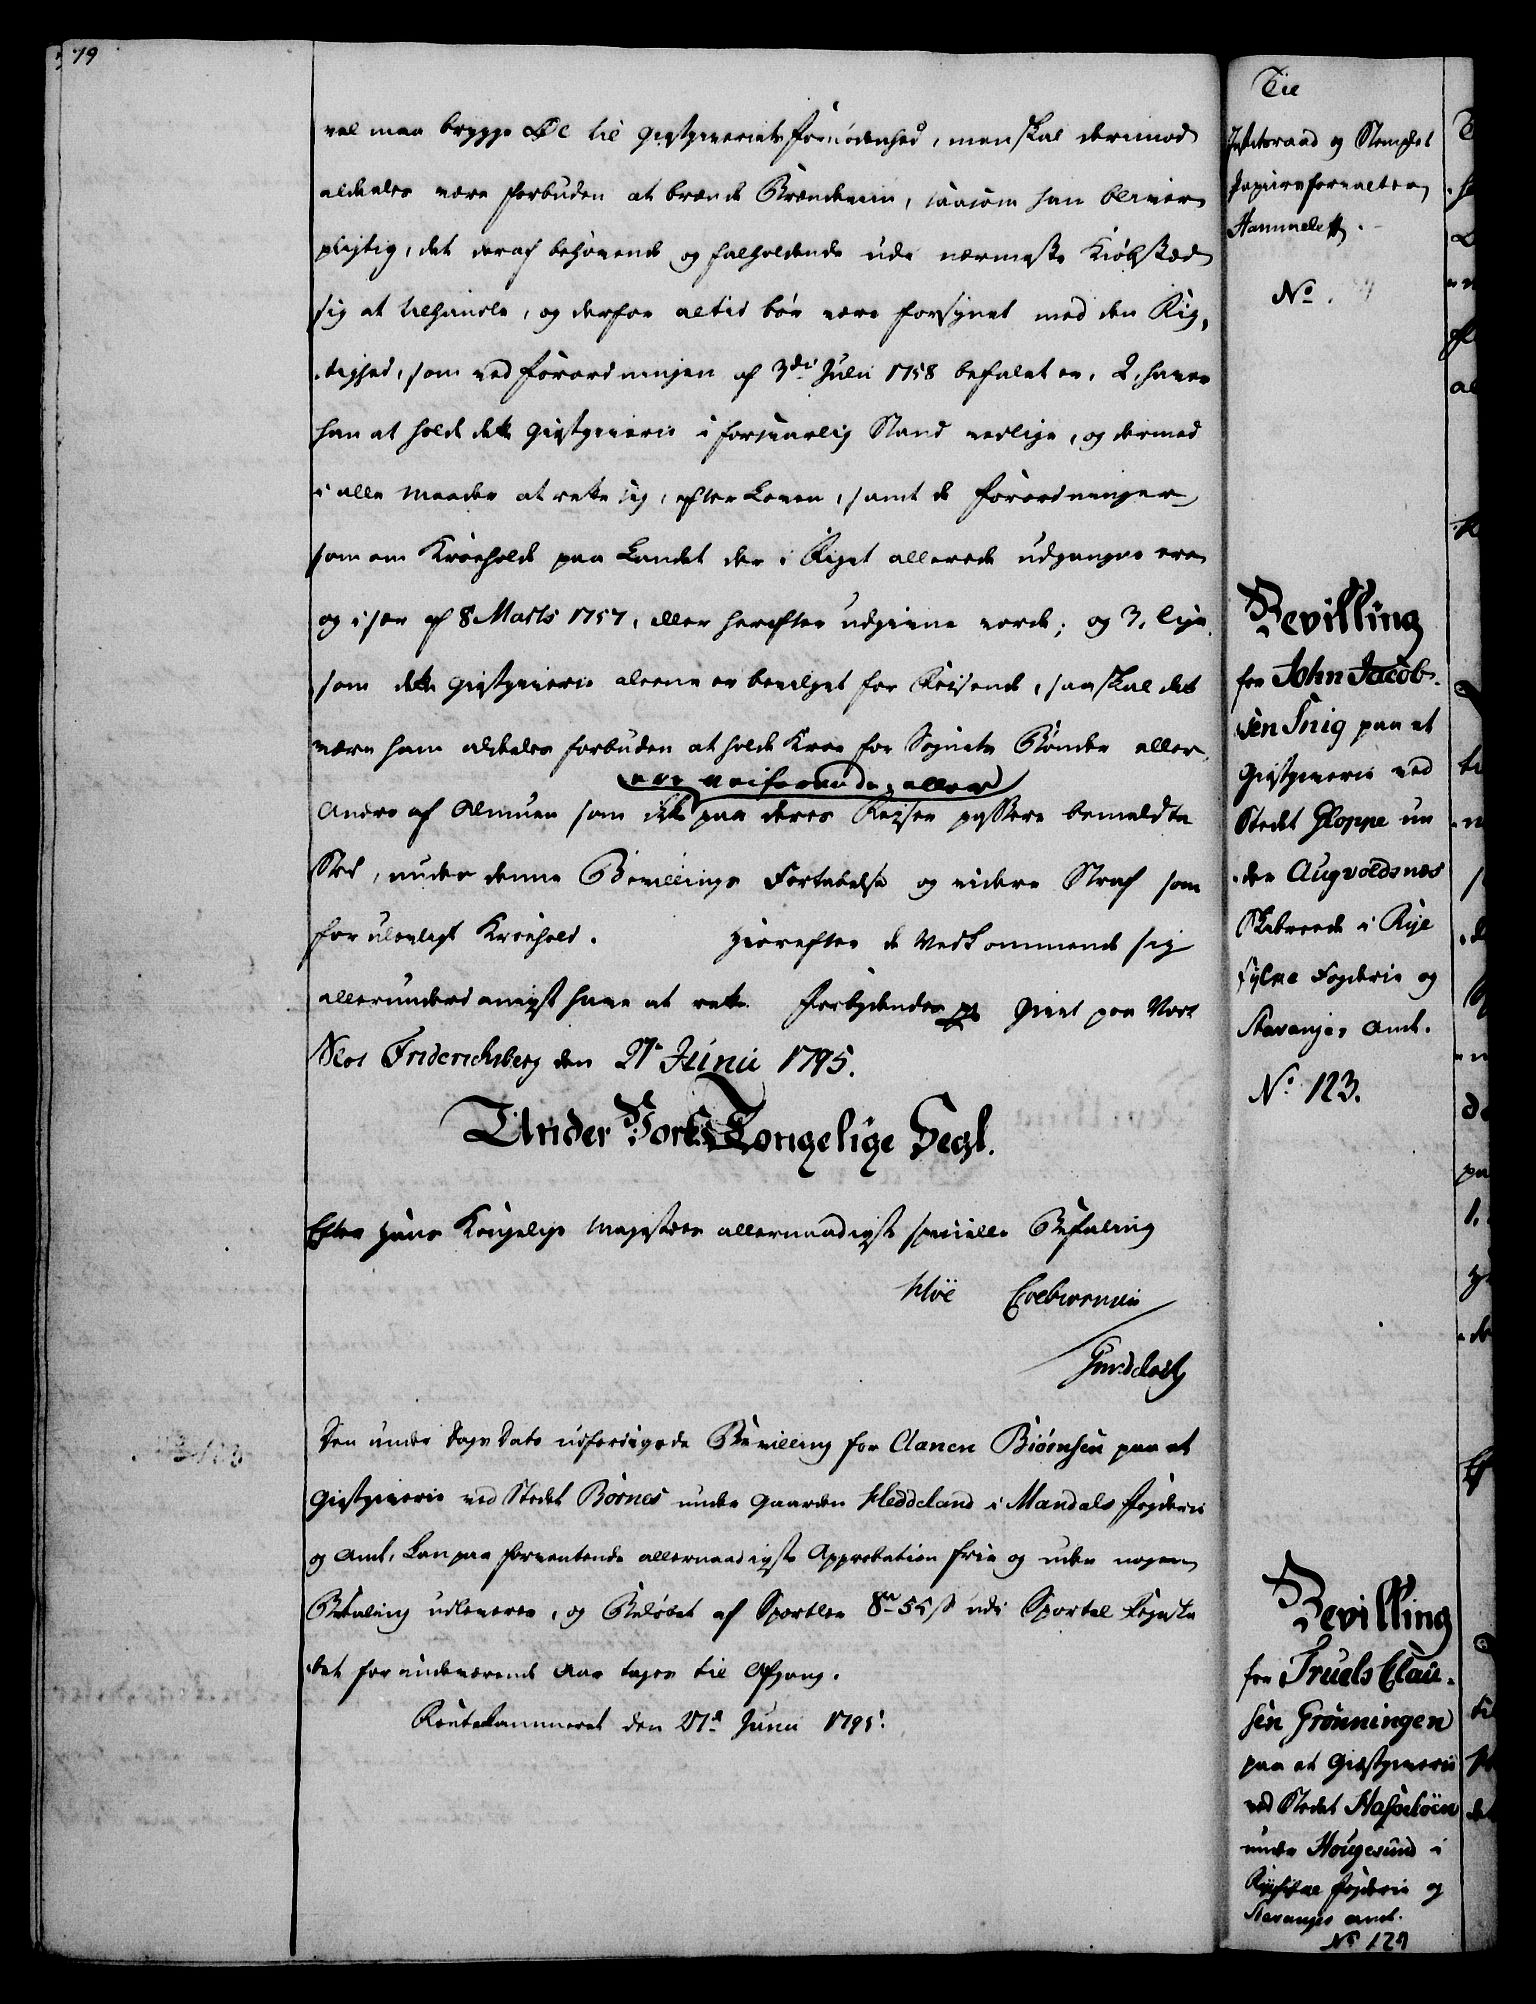 79
vel maa brygge Øl til Giestgiveriets Fornødenhed, men skal derimod
aldeles være forbuden at brænde Brændeviin, saasom han bliver
pligtig, det deraf behøvende og falholdende udi nærmeste Kiøbsted
sig at tilhandle, og derfor altid bør være forsynet med den Rig,
tighed, som ved Forordningen af 3die Julii 1758 befalet er. 2, haver
han at holde dette Giestgiverie i forsvarlig Stand vedlige, og dermed
i alle Maader at rette sig, efter Loven, samt de Forordninger
som om Kroehold paa Landet der i Riget allerede udgangne ere
og især af 8 Marts 1757, eller herefter udgivne vorde; og 3, lige
som dette Giestgiverie alene er bevilget for Reisende, saa skal det
være ham aldeles forbuden at holde Kroe for Sognets Bønder eller
ere veifarende, eller
Andre af Almuen som ikke paa deres Reiser passere bemeldte
Sted, under denne Bevillings Fortabelse og videre Straf som
for ulovligt Kroehold. Hvorefter de Vedkommende sig
allerunderdanigst have at rette. Forbydendes Givet paa Vort
Slot Friderichsberg den 27 Junii 1795.
Under Vort Kongelige Segl.
Efter Hans Kongelige Majestæts allernaadigste specielle Befaling
Høe Colbiørnsen
Den under Dags Dato udfærdigede Bevilling for Aanen Biørnsen paa et
Giestgiverie ved Stedet Børnes under Gaarden Heddeland i Mandals Fogderie
og Amt, kan paa forventende allernaadigste Approbation frie og uden nogen
Betaling udleveres, og Beløbet af Sportler 8 rd 55 s udi Sportel Regnska
bet for indeværende Aar tages til Afgang.
Rentekammeret den 27d Junii 1795.
Til
Justitsraad og Stemplet
Papiirs forvalter
Hammeleff.
No
Bevilling
for John Jacob-
sen Snig paa et
Giestgiverie ved
Stedet Gloppe un
der Augvoldsnæs
Skibreede i Rye
fylke Fogderie og
Stavanger Amt.
No. 123.
Bevilling
for Truels Clau-
sen Grønningen
paa et Giestgiverie
ved Stedet Hasseløen
under Hougesund i
Ryefylke Fogderie og
Stavanger Amt.
No 124